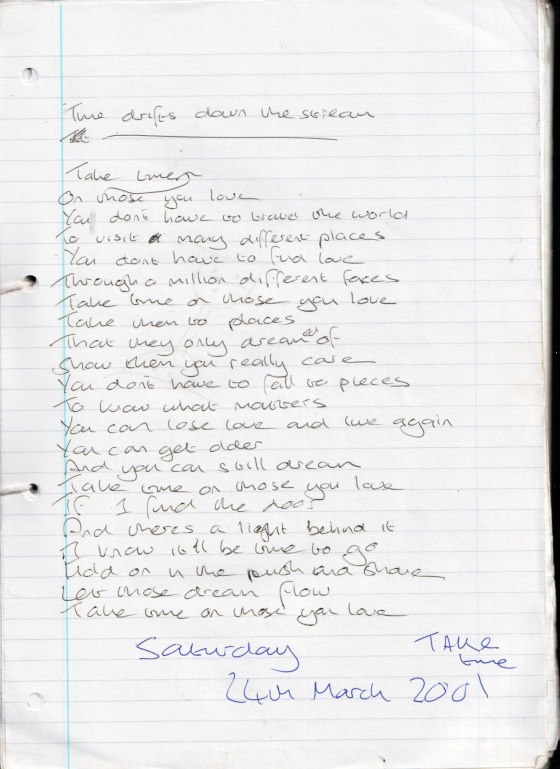 Time drifts down the stream
Take time
On those you love
You don't have to travel the world
To visit many different places
You dont have to find love
Through a million different faces
Take time on those you love
Take them to places
That they only dreamed of
Show them you really care
You don't have to fall to pieces
To know what matters
You can lose love and live again
You can get older
And you can still dream
Take time on those you love
If I find the door
And theres a light behind it
I know it'll be time to go
Hold on in the push and shove
Let those dream flow
Take time on those you love
Saturday
TAKE
time
24th March 2001